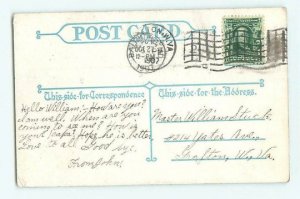 POST CARD
This side for Correspondence
This side for the Address.
Hello William:- How are you?
I am well. When are you
coming to see me? How is
your papa? Hope he is better.
Love to all. Good bye.
From John.
Master William
4214 Yates Ave.,
Grafton, W. Va.